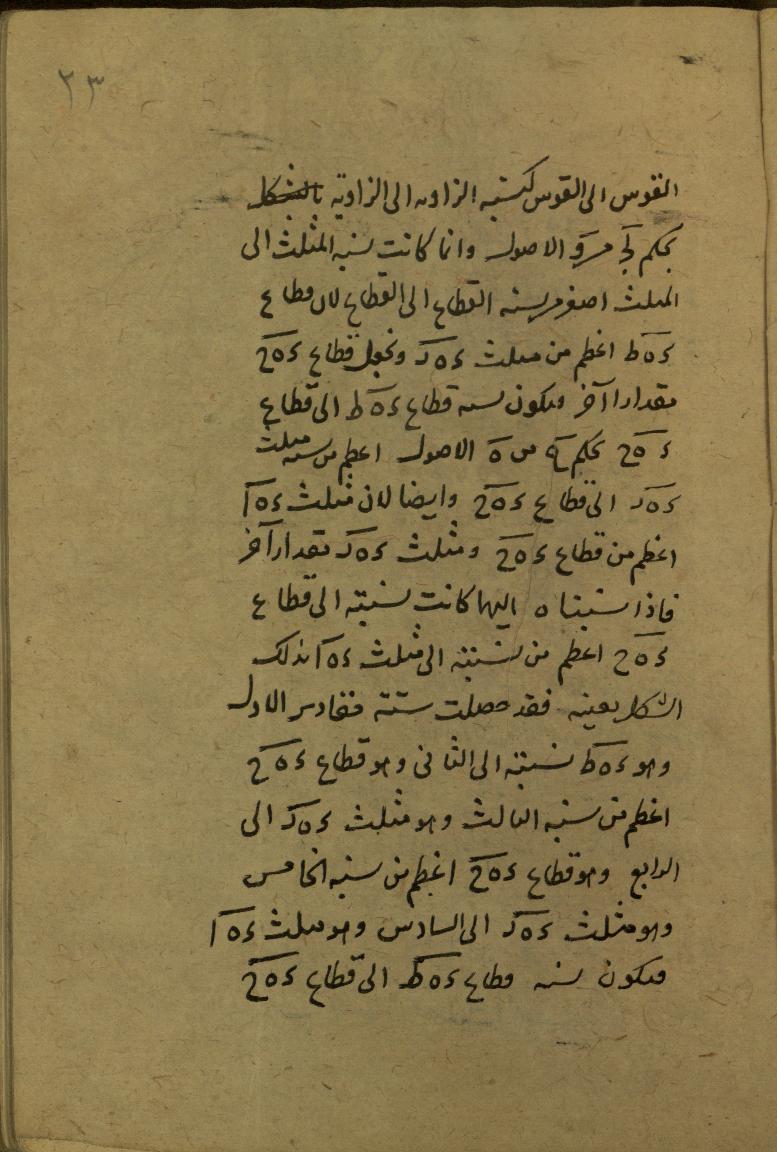 ٢٣
القوس الى القوس كنسبه الزاويه الى الزاوية بالشكل
بحكم لج من و الاصول وانما كانت نسبه المثلث الى
المثلث اصغر من نسبه القطاع الى القطاع لان قطاع
ء ه ط اعظم من مثلث ء ه د ونجعل قطاع ء ه ح
مقدارا آخر فيكون نسبه قطاع ء ه ط الى قطاع
ء ه ح بحكم من ه الاصول اعظم من نسبه مثلث
ء ه د الى قطاع ء ه ح وايضا لان مثلث ء ه ا
اعظم من قطاع ء ه ح ومثلث ء ه د مقدار آخر
فاذا نسبناه اليها كانت نسبته الى قطاع
ء ه ح اعظم من نسبته الى مثلث ء ه ا بذلك
الشكل بعينه فقد حصلت ستة مقادير الاول
وهو ء ه ط نسبته الى الثانى وهو قطاع ء ه ح
اعظم من نسبه الثالث وهو مثلث ء ه د الى
الرابع وهو قطاع ء ه ح اعظم من نسبه الخامس
وهو مثلث ء ه د الى السادس وهو مثلث ء ه ا
فيكون نسبه قطاع ء ه ط الى قطاع ء ه ح